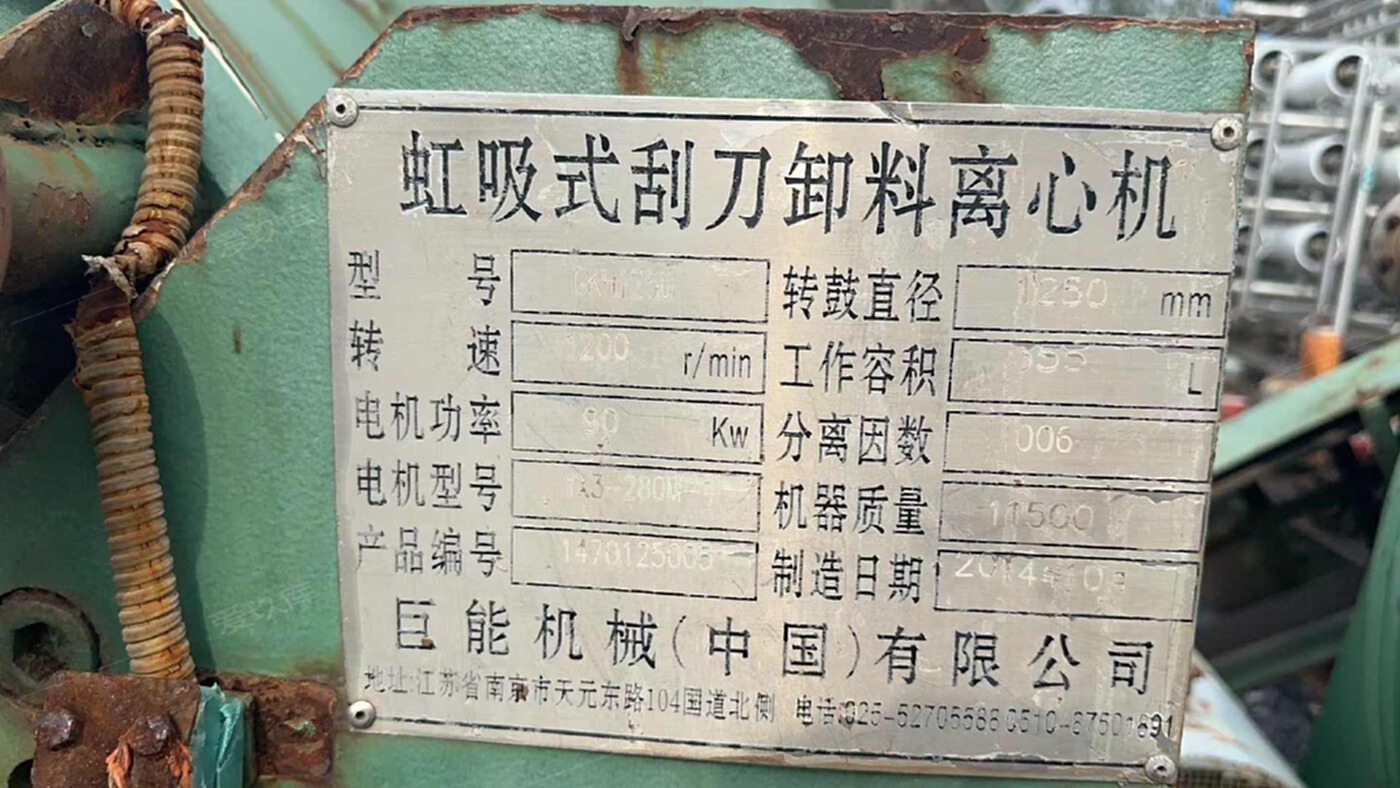 虹吸式刮刀卸料离心机
型号 转鼓直径 1250 mm
转速 1200 r/min 工作容积 L
电机功率 90 Kw 分离因数 1006
电机型号 机器质量 11500
产品编号 1470125005 制造日期 2014年10月
巨能机械(中国)有限公司
地址:江苏省南京市天元东路104国道北侧 电话:025-52705588 0510-87501891